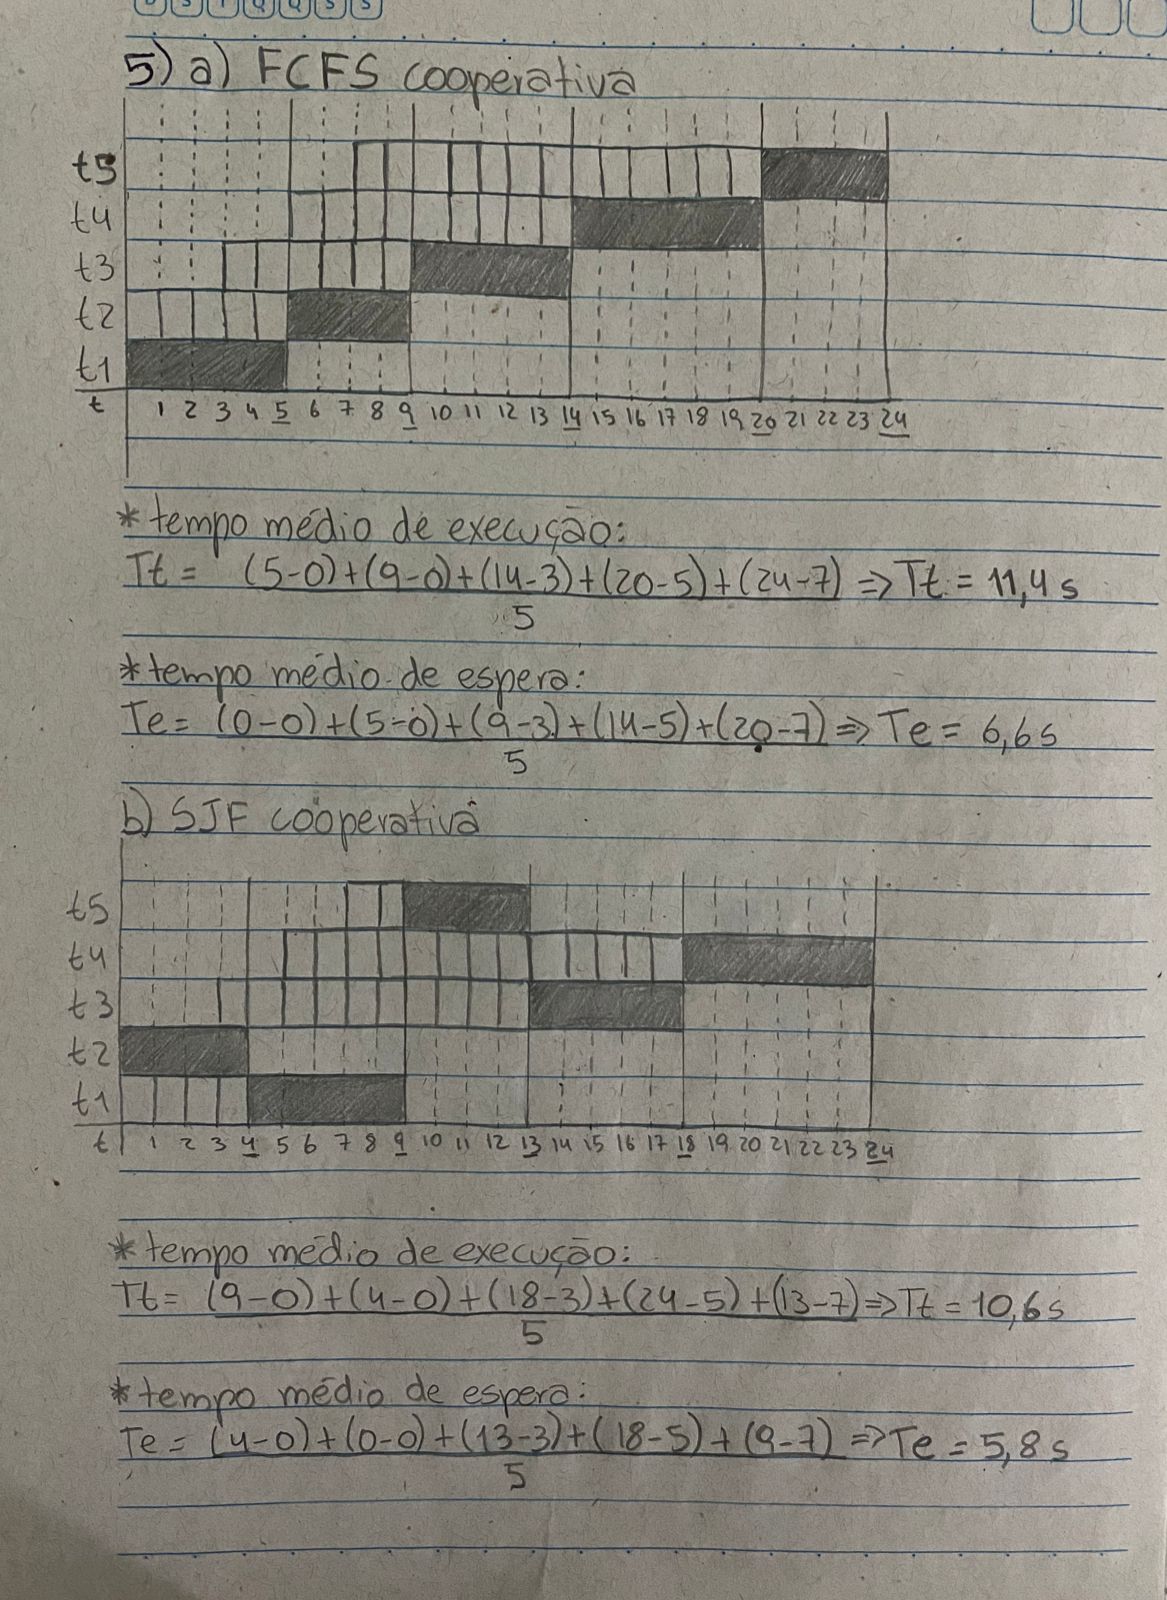 D S T Q Q S S
5) a) FCFS cooperativa
t5
t4
t3
t2
t1
t 1 2 3 4 5 6 7 8 9 10 11 12 13 14 15 16 17 18 19 20 21 22 23 24
* tempo médio de execução:
Tt = (5-0)+(9-0)+(14-3)+(20-5)+(24-7) => Tt = 11,4 s
5
* tempo médio de espera:
Te = (0-0)+(5-0)+(9-3)+(14-5)+(20-7) => Te = 6,6 s
5
b) SJF cooperativa
t5
t4
t3
t2
t1
t 1 2 3 4 5 6 7 8 9 10 11 12 13 14 15 16 17 18 19 20 21 22 23 24
* tempo médio de execução:
Tt = (9-0)+(4-0)+(18-3)+(24-5)+(13-7) => Tt = 10,6 s
5
* tempo médio de espera:
Te = (4-0)+(0-0)+(13-3)+(18-5)+(9-7) => Te = 5,8 s
5